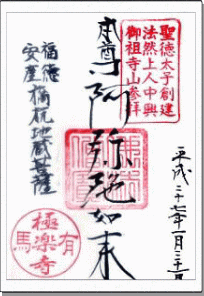 聖徳太子創建
法然上人中興
御祖寺山参拝
平成二十七年一月
本尊阿弥陀如来
福徳
安産
地蔵菩薩
有馬
極楽寺